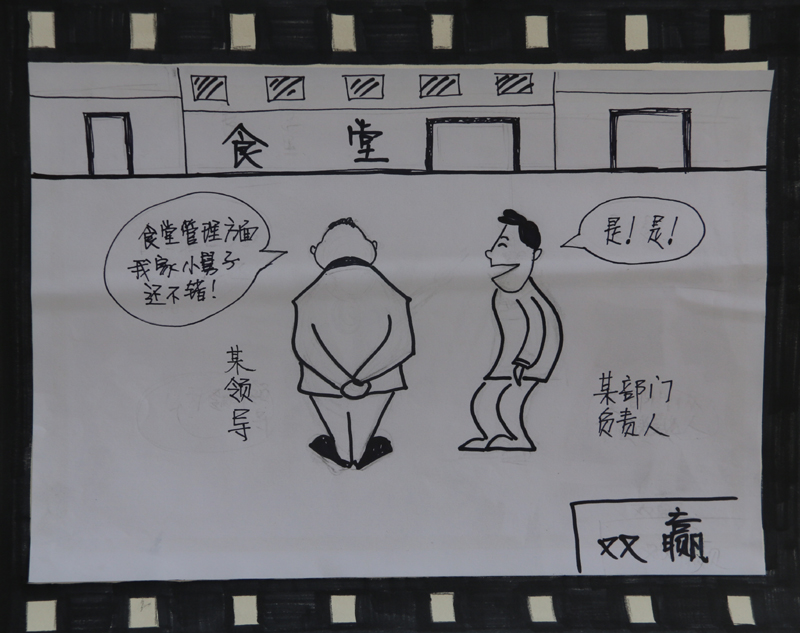 食堂
食堂管理方面
我家小舅子
还不错！
是！是！
某领导
某部门
负责人
双赢